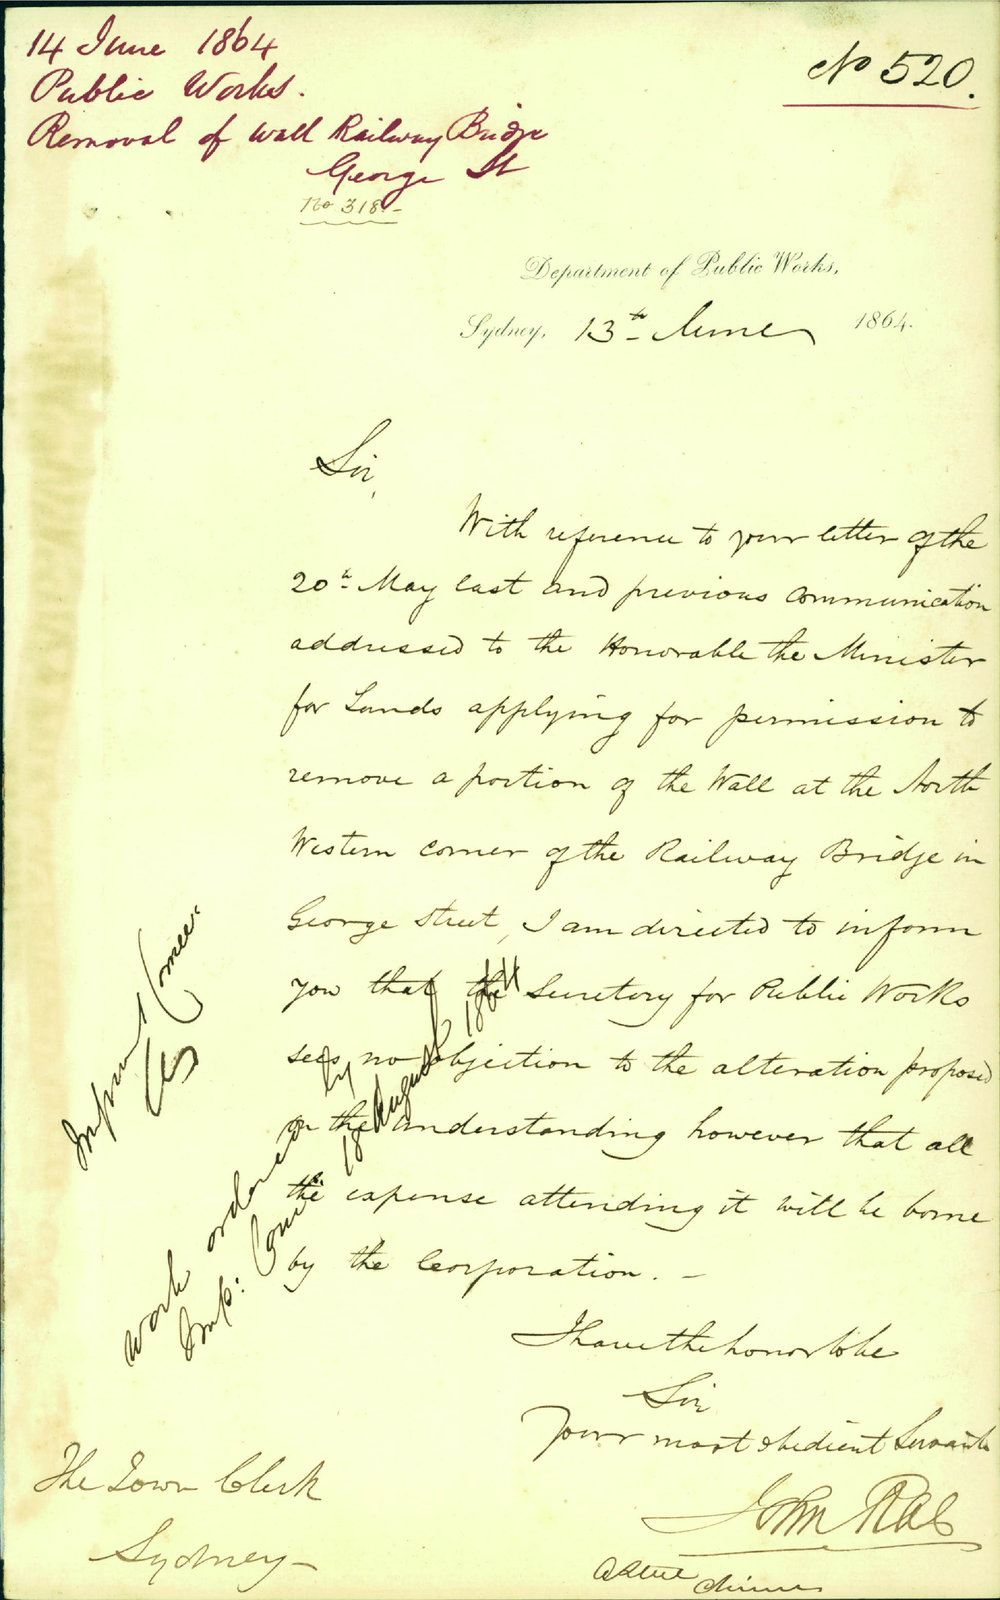 14 June 1864
Public Works.
Removal of Wall Railway Bridge
George St
No 318.-
No 520.
Department of Public Works,
Sydney, 13th June 1864.
Sir,
With reference to your letter of the
20th May last and previous communication
addressed to the Honorable the Minister
for Lands applying for permission to
remove a portion of the Wall at the North
Western corner of the Railway Bridge in
George Street, I am directed to inform
you that the Secretary for Public Works
sees no objection to the alteration proposed
on the understanding however that all
the expense attending it will be borne
by the Corporation. -
I have the honor to be
Sir
Your most obedient Servant
John Rae
The Town Clerk
Sydney
Improvmt Comee.
work ordered by
Imp: Comee 18 August 1864